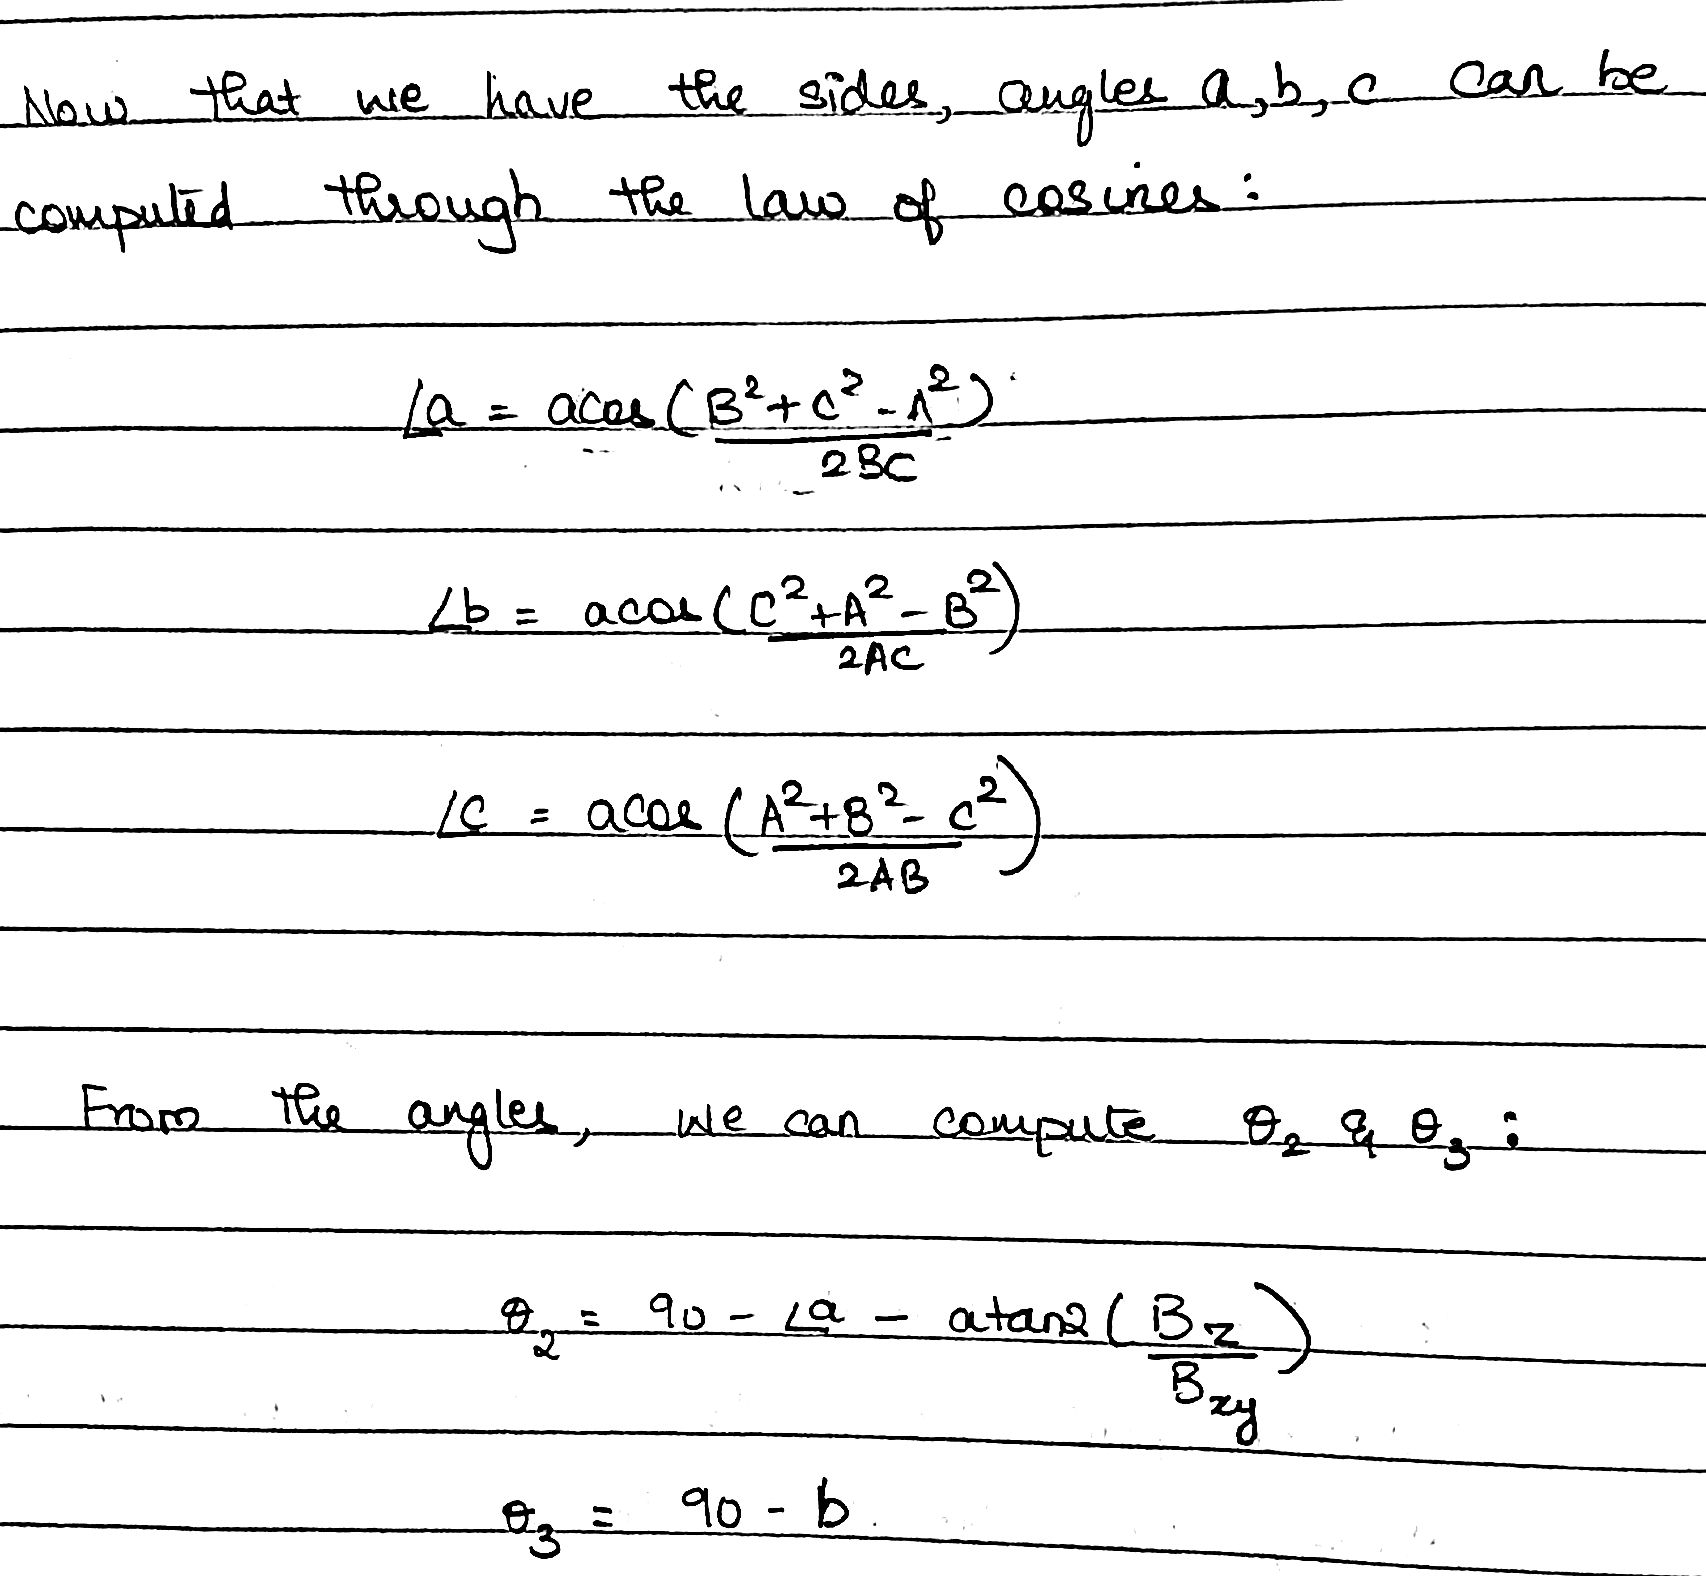 Now that we have the sides, angles a, b, c can be
computed through the law of cosines:
∠a = acos(B²+C²-A²)
2BC
∠b = acos(C²+A²-B²)
2AC
∠c = acos(A²+B²-C²)
2AB
From the angles, we can compute θ₂ & θ₃ :
θ₂ = 90 - ∠a - atan2(B_z)
B_xy
θ₃ = 90 - b